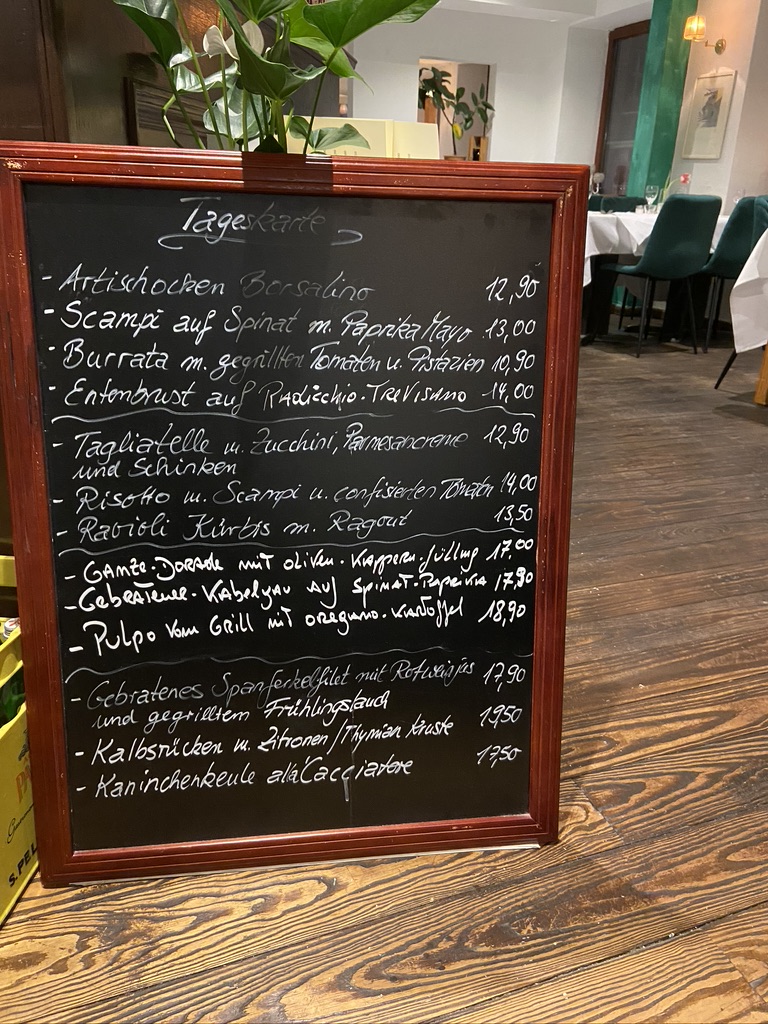 Tageskarte
- Artischocken Borsalino 12,90
- Scampi auf Spinat m. Paprika Mayo 13,00
- Burrata m. gegrillten Tomaten u. Pistazien 10,90
- Entenbrust auf Radicchio-Trevisano 14,00
- Tagliatelle m. Zucchini, Parmesancreme 12,90
und Schinken
- Risotto m. Scampi u. confisierten Tomaten 14,00
- Ravioli Kürbis m. Ragout 13,50
- Ganze-Dorade mit oliven-Kappern-füllung 17,00
- Gebratener-Kabelgau auf Spinat-Paprika 17,90
- Pulpo vom Grill mit oregano-Kartoffel 18,90
- Gebratenes Spanferkelfilet mit Rotweinjus 17,90
und gegrilltem Frühlingslauch
- Kalbsrücken m. Zitronen/Thymian Kruste 19,50
- Kaninchenkeule alla Cacciatore 17,50
S.PEL